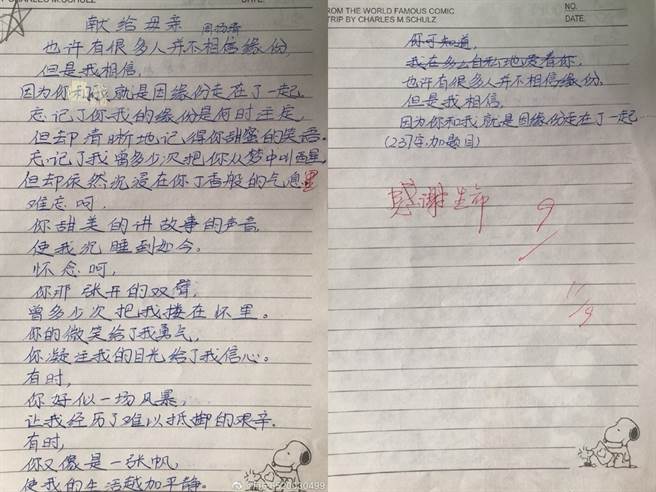 CHARLES M.SCHULZ
DATE.
献给母亲
也许有很多人并不相信缘份,
但是我相信,
因为你和我就是因缘份走在了一起,
忘记了你我的缘份是何时注定,
但却清晰地记得你甜蜜的笑语。
忘记了我曾多少次把你从梦中叫醒,
但却依然沉浸在你丁香般的气息里
难忘呵,
你甜美的讲故事的声音,
使我沉睡到如今。
怀念呵,
你那张开的双臂,
曾多少次把我搂在怀里。
你的微笑给了我勇气,
你凝注我的目光给了我信心。
有时,
你好似一场风暴,
让我经历了难以抵御的艰辛.
有时,
你又像是一张帆,
使我的生活越加平静。
FROM THE WORLD FAMOUS COMIC
TRIP BY CHARLES M.SCHULZ
NO.
DATE.
你可知道,
我在多么自私地爱着你,
也许有很多人并不相信缘份,
但是我相信,
因为你和我就是因缘份走在了一起
(237字,加题目)
感谢生命
9/
11/9